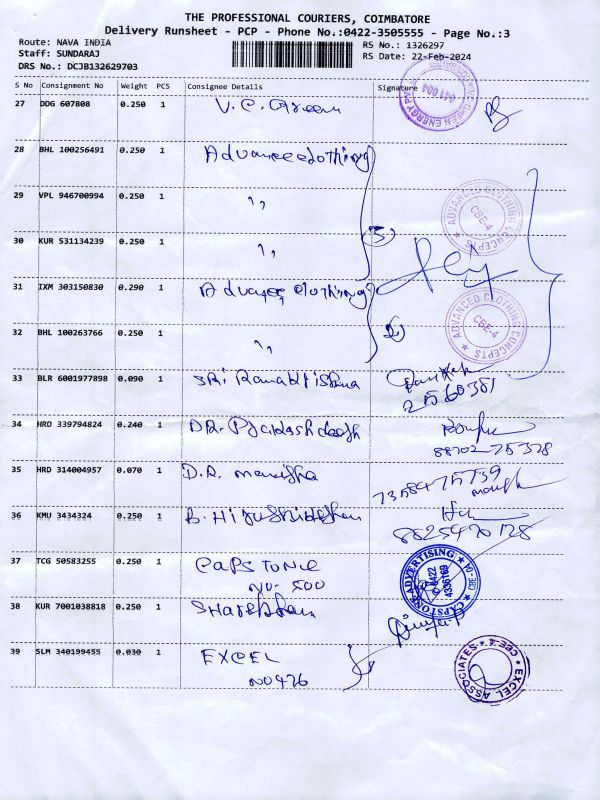 THE PROFESSIONAL COURIERS, COIMBATORE
Delivery Runsheet - PCP - Phone No.:0422-3505555 - Page No.:3
Route: NAVA INDIA
RS No.: 1326297
Staff: SUNDARAJ
RS Date: 22-Feb-2024
DRS No.: DCJB132629703
S No Consignment No Weight PCS Consignee Details Signature
27 DDG 607808 0.250 1 V.C.
28 BHL 100256491 0.250 1 Advance clothing
29 VPL 946700994 0.250 1 ,,
30 KUR 531134239 0.250 1 ,,
(3)
31 IXM 303150830 0.290 1 Advance clothing
32 BHL 100263766 0.250 1 ,,
ADVANCED CLOTHING CONCEPTS
CBE-4
ADVANCED CLOTHING CONCEPTS
CBE-4
33 BLR 6001977898 0.090 1 SRi Ramakrishna
2560381
34 HRD 339794824 0.240 1 DR.
88702-75328
35 HRD 314004957 0.070 1 D.R. manisha
7358475739
36 KMU 3434324 0.250 1 B.
8825490128
37 TCG 50583255 0.250 1 CAPSTONE
NO-500
CAPSTONE ADVERTISING
0422
4336169
38 KUR 7001038818 0.250 1
39 SLM 340199455 0.030 1 EXCEL
NO426
EXCEL ASSOCIATES
CBE-4